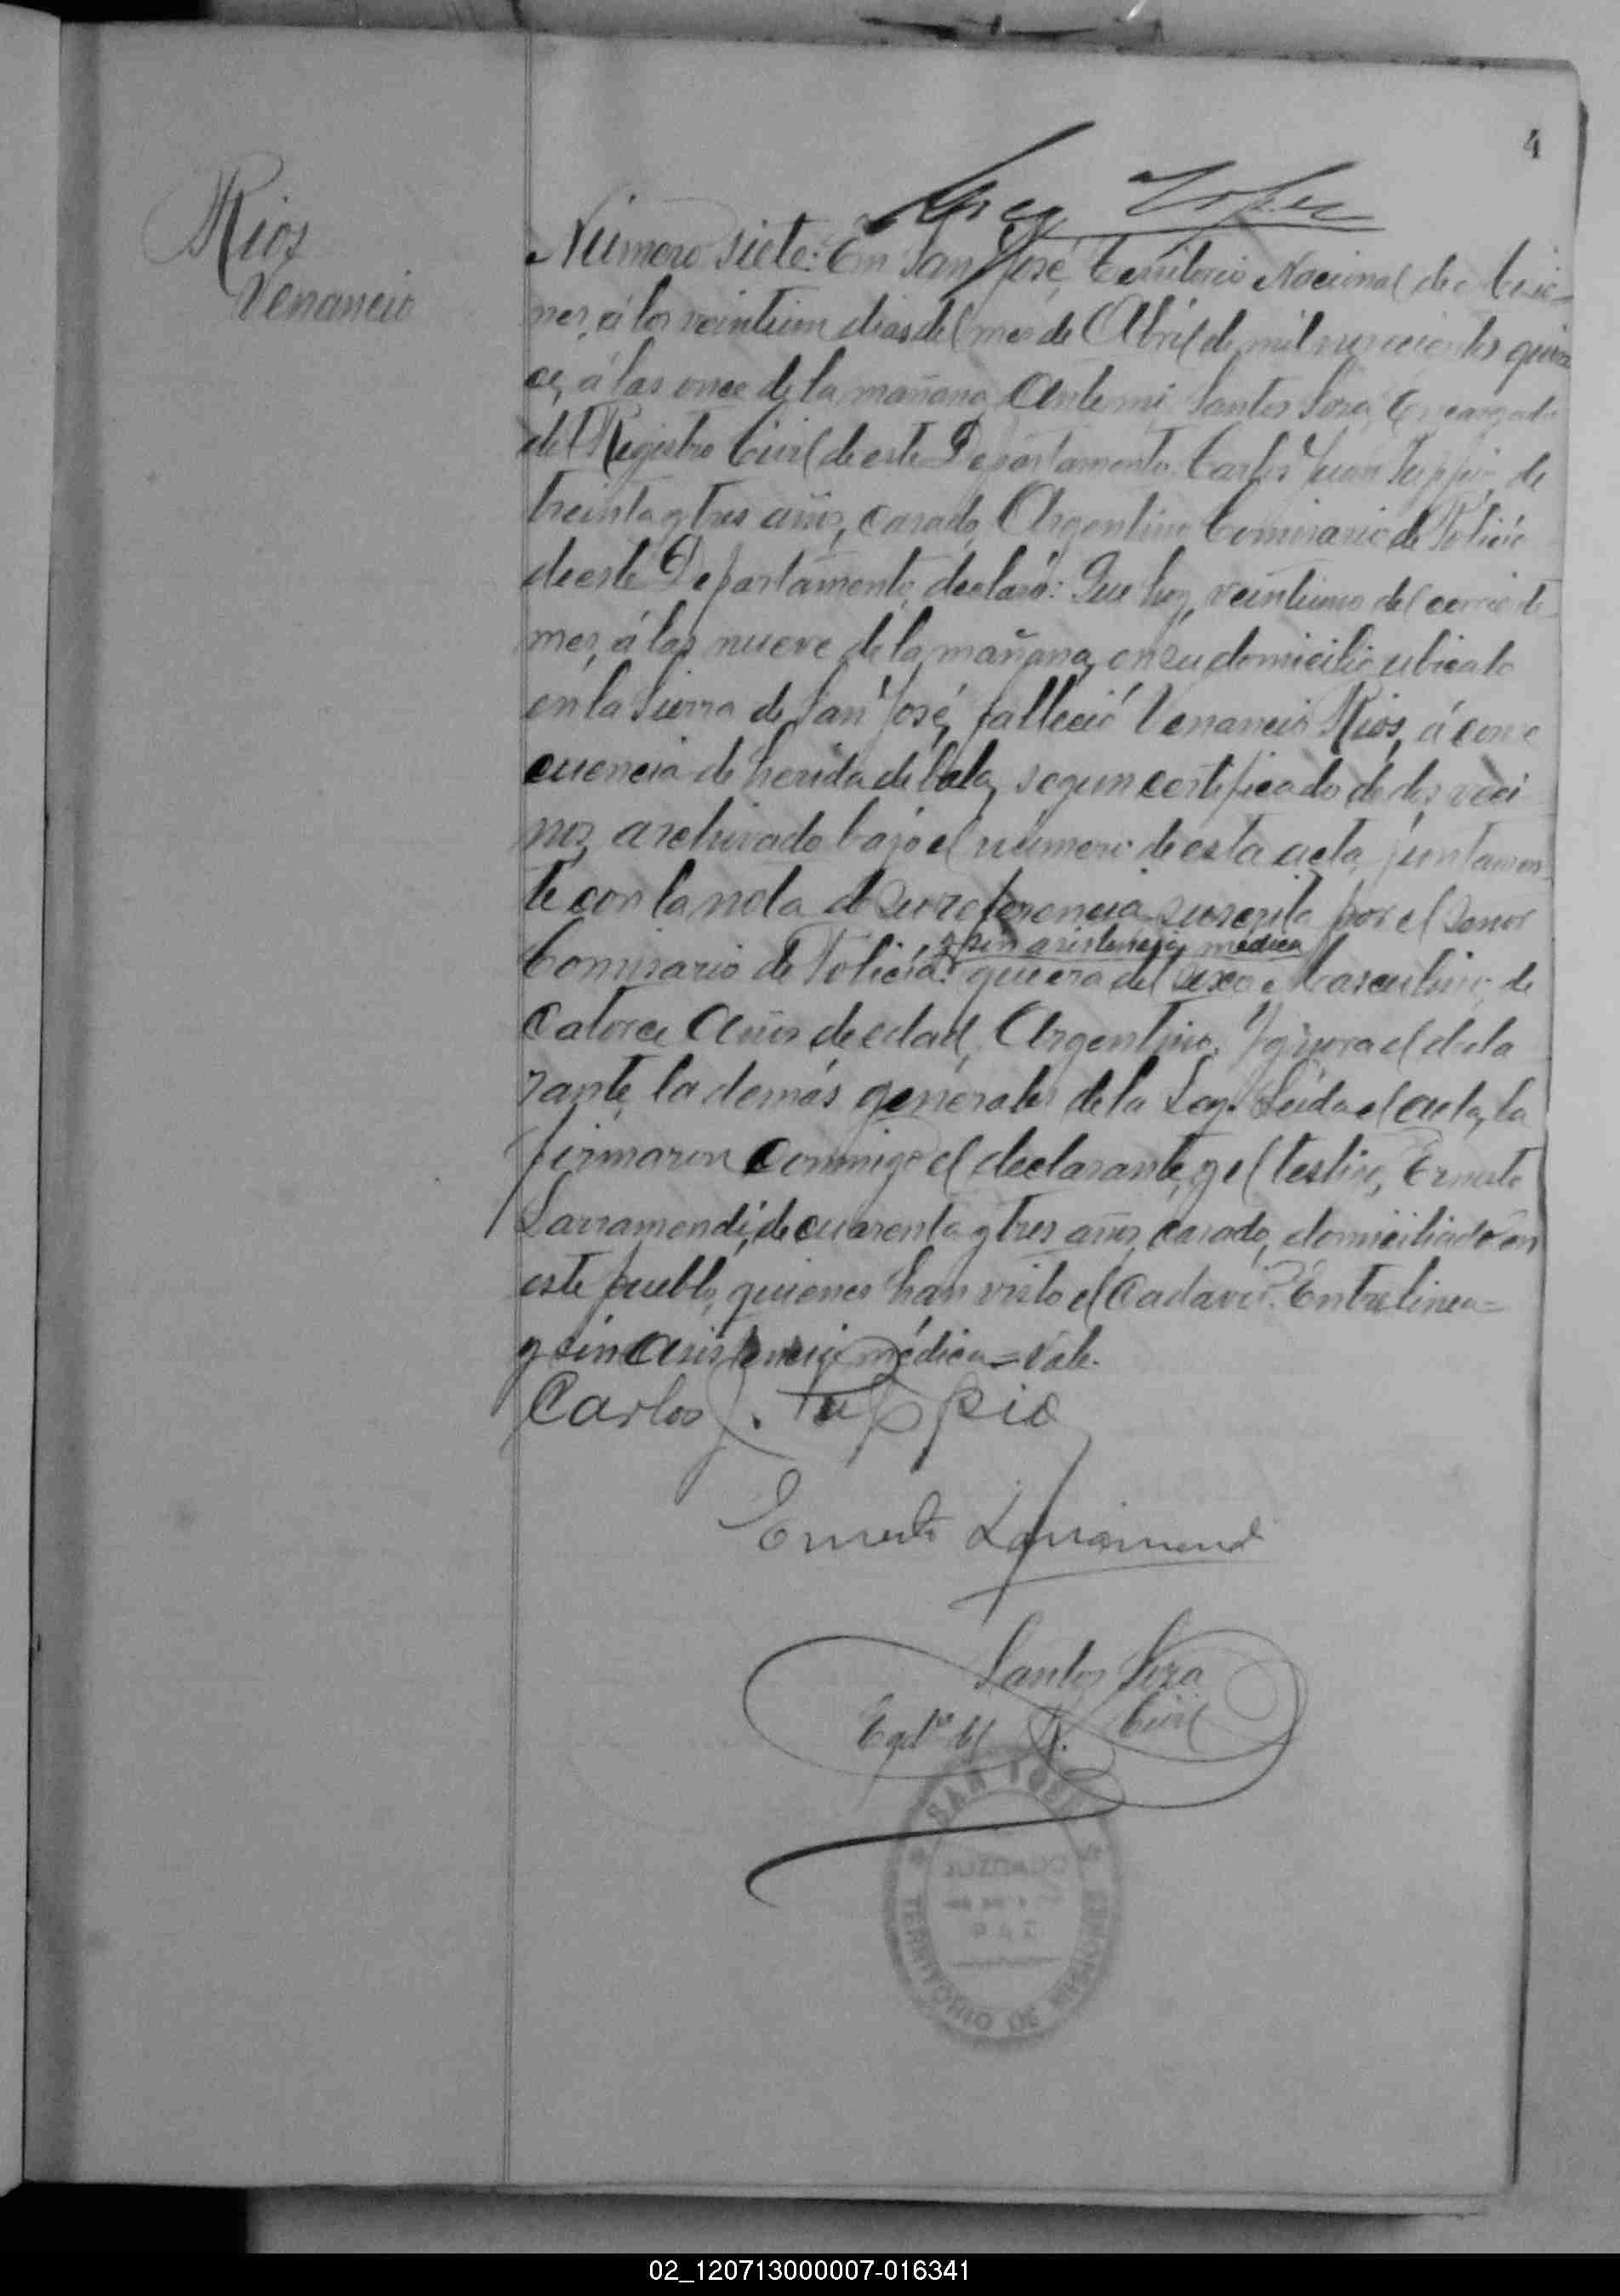 4
Rios
Venancio
Número siete: En San José, Territorio Nacional de Misio=
nes, á los veintiun dias del mes de Abril de mil novecientos quin
ce, á las once de la mañana, Ante mi, Santos Sosa, Encargado
del Registro Civil de este Departamento. Carlos Juan Tuppio, de
treinta y tres años, casado, Argentino, Comisario de Policia
de este Departamento, declaró: Que hoy, veintiuno del corriente
mes, á las nueve de la mañana, en su domicilio ubicato
en la Sierra de San José, falleció Venancio Rios, á conse
cuencia de herida de bala, segun certificado de dos veci
nos, archivado bajo el número de esta acta, juntamen
te con la nota de su referencia suscrita por el Señor
y sin asistencia médica
Comisario de Policía: que era del sexo Masculino, de
Catorce Años de edad, Argentino. Ignora el decla
rante, la demás generales de la Ley. Leida el acta, la
firmaron conmigo el declarante, y el testigo, Ernesto
Larramendi, de cuarenta y tres años, casado, domiciliado en
este pueblo, quienes han visto el Cadaver. Entrelinea=
y sin asistencia médica = Vale.
Carlos J. Tuppio
Ernesto Larramendi
Santos Sosa
Egdo del R. Civil
SAN JOSE
TERRITORIO DE MISIONES
02_120713000007-016341